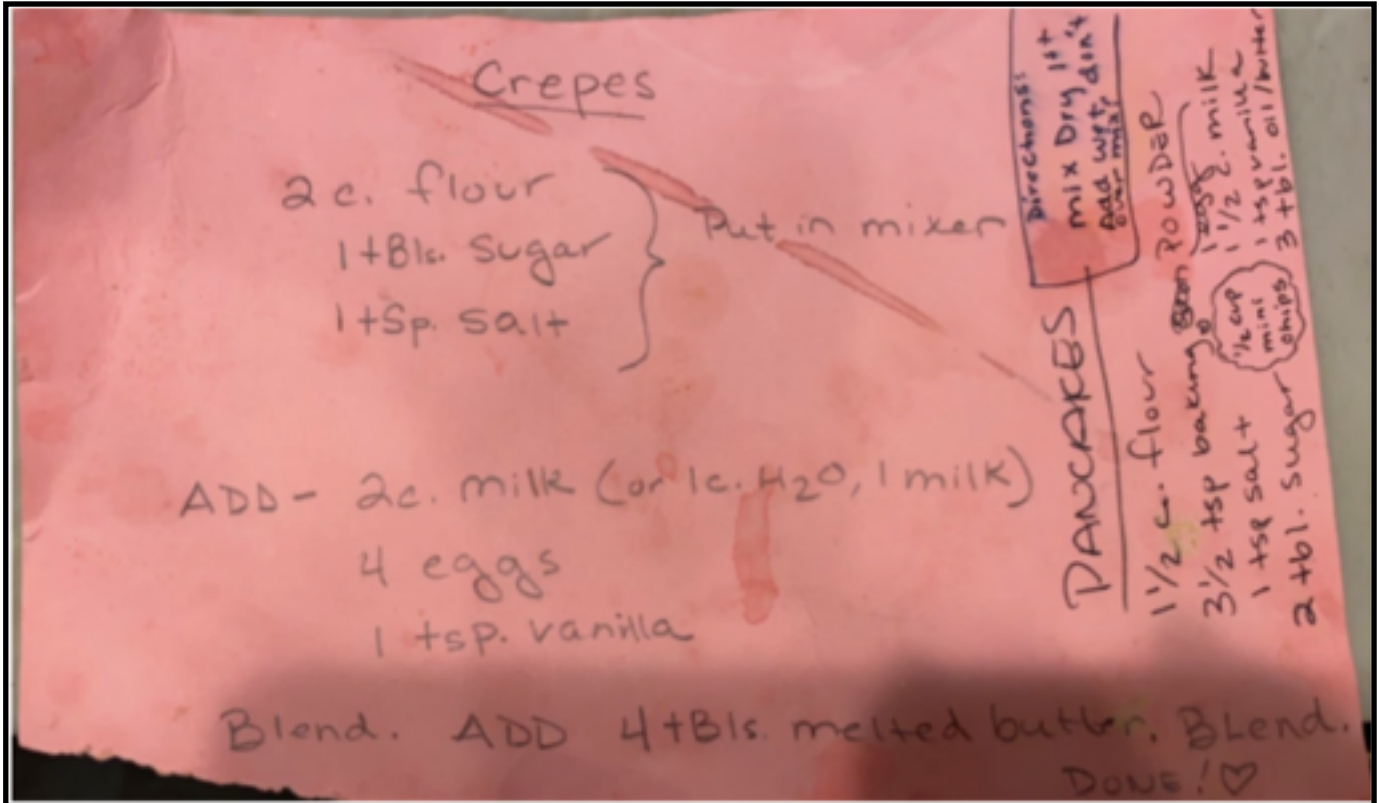 Crepes
2 c. flour
1 tBls. Sugar
1 tSp. Salt
Put in mixer
ADD- 2c. milk (or 1c. H2O, 1 milk)
4 eggs
1 tsp. vanilla
Blend. ADD 4 tBls. melted butter. BLend.
DONE! ♡
PANCAKES
Directions:
mix Dry 1st
Add wet, don't
over mix
1 1/2 c. flour
3 1/2 tsp baking POWDER
1 tsp salt
2 tbl. sugar
1/2 cup
mini
chips
1 egg
1 1/2 c. milk
1 tsp vanilla
3 tbl. oil/butter